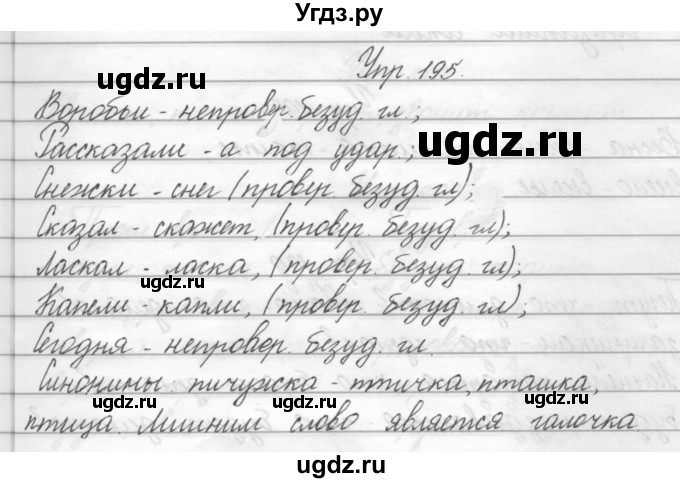 Угдз.ру
Упр. 195.
ugdz.ru ugdz.ru
Воробьи - непровер. безуд. гл.;
Рассказали - а под удар.;
ugdz.ru
Снежки - снег (провер. безуд. гл);
Сказал - скажет, (провер. безуд. гл);
Ласкал - ласка, (провер. безуд. гл);
ugdz.ru
Капели - капли, (провер. безуд. гл);
Сегодня - непровер. безуд. гл.
Синонины пичужка - птичка, пташка,
ugdz.ru ugdz.ru
птица. Лишним слово является галочка.
ugdz.ru